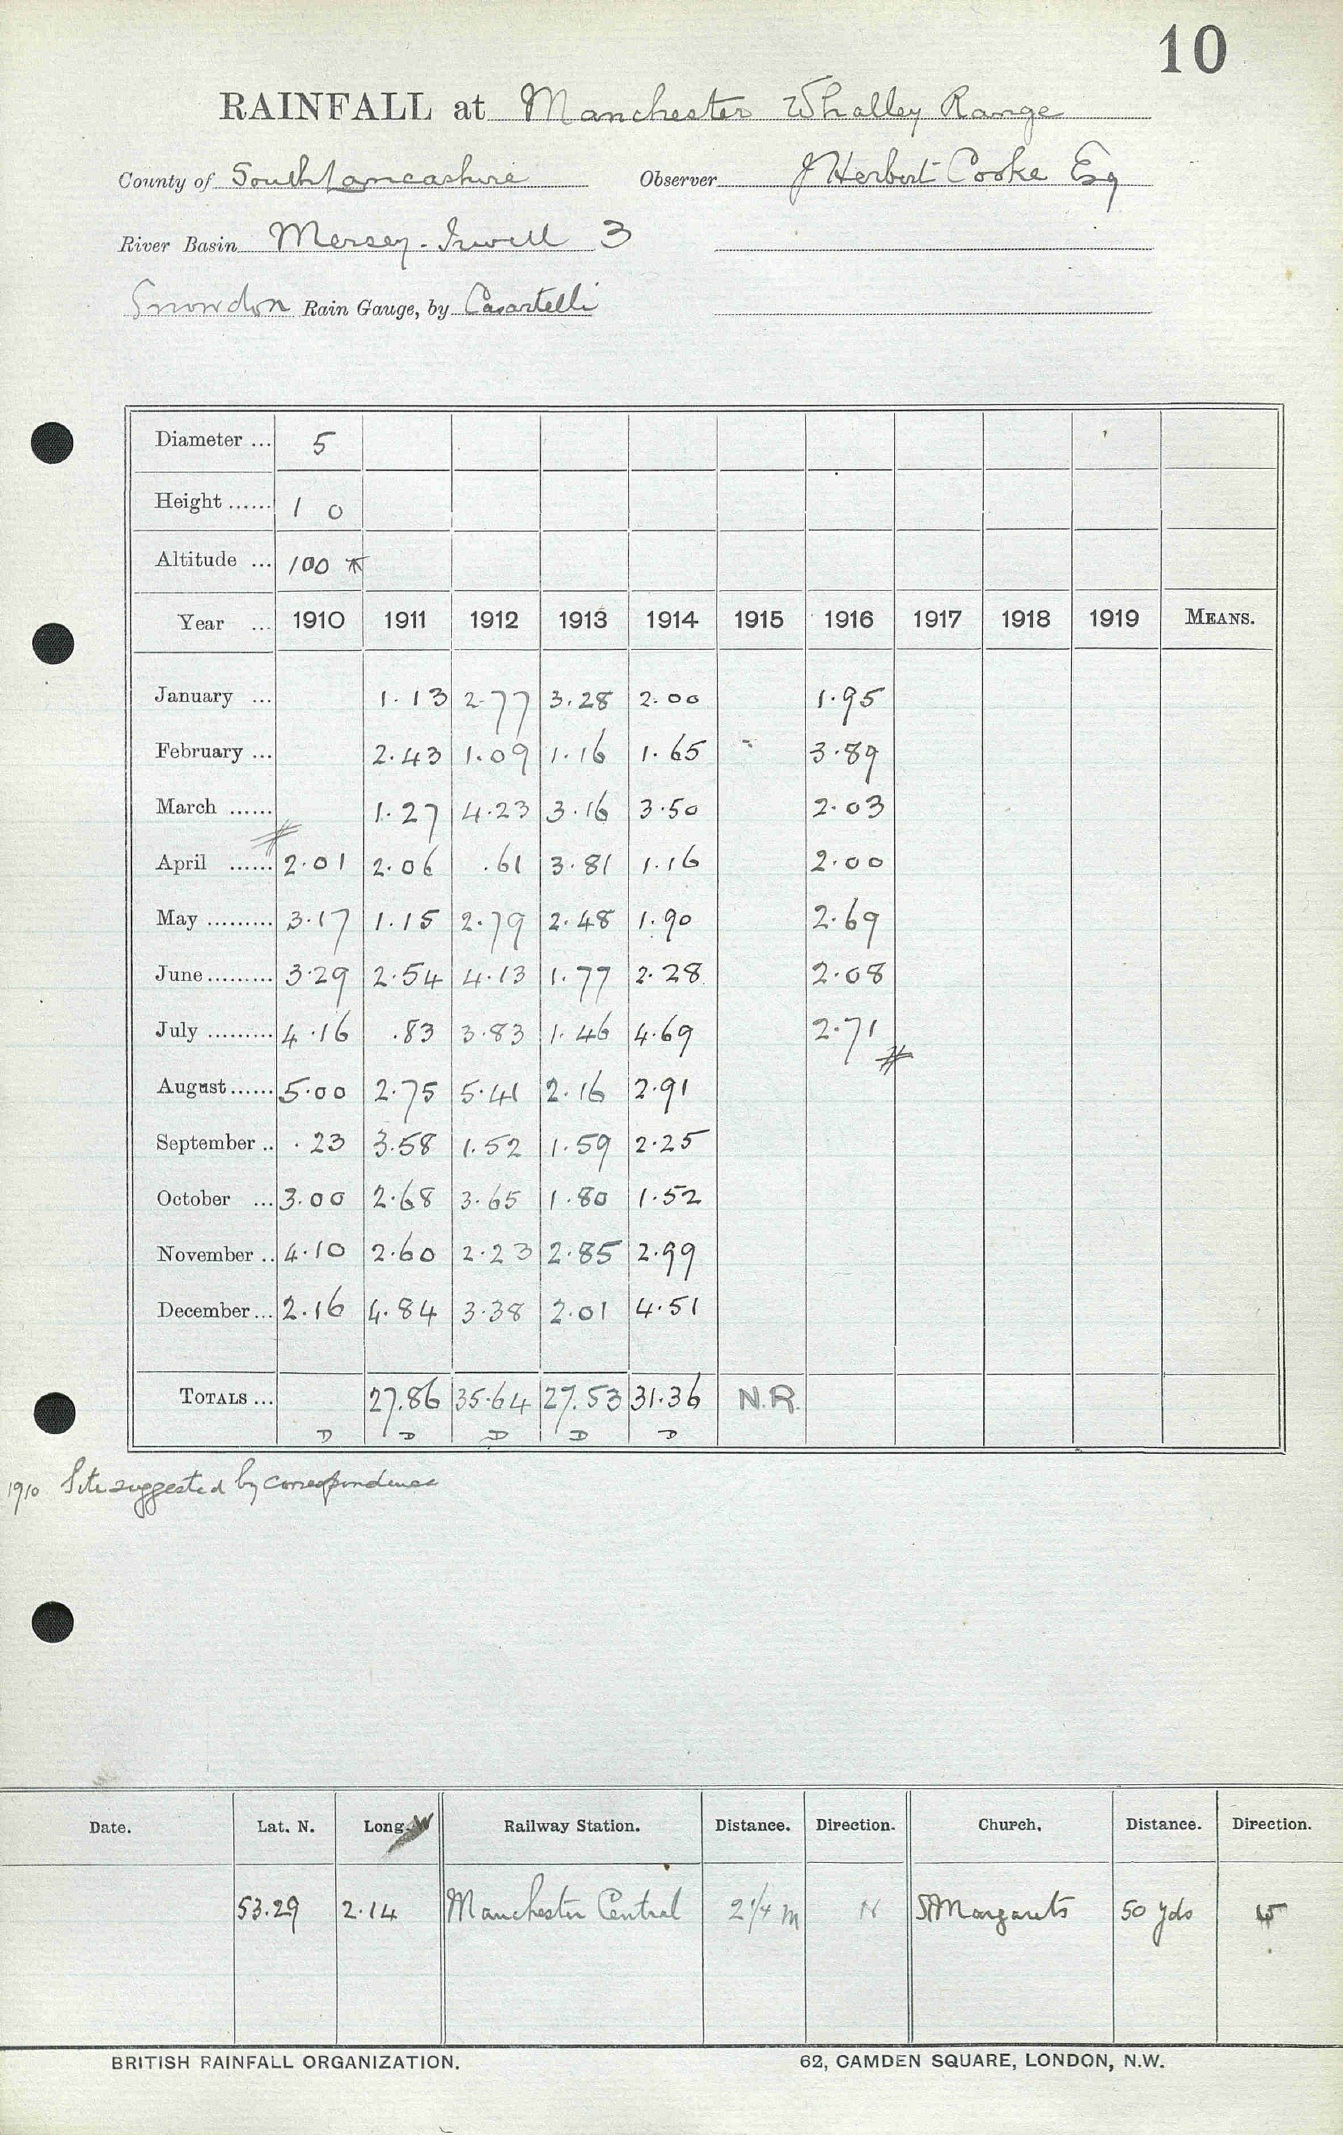 10
RAINFALL at Manchester Whalley Range
County of South Lancashire Observer J Herbert Cooke Esq
River Basin Mersey-Irwell 3
Snowdon Rain Gauge, by Casartelli
Diameter ... 5
Height ...... 1 0
Altitude ... 100
Year ... 1910 1911 1912 1913 1914 1915 1916 1917 1918 1919 MEANS.
January ... 1.13 2.77 3.28 2.00 1.95
February ... 2.43 1.09 1.16 1.65 - 3.89
March ...... 1.27 4.23 3.16 3.50 2.03
April ...... 2.01 2.06 .61 3.81 1.16 2.00
May ......... 3.17 1.15 2.79 2.48 1.90 2.69
June ......... 3.29 2.54 4.13 1.77 2.28 2.08
July ......... 4.16 .83 3.83 1.46 4.69 2.71
August ...... 5.00 2.75 5.41 2.16 2.91
September .. .23 3.58 1.52 1.59 2.25
October ... 3.00 2.68 3.65 1.80 1.52
November .. 4.10 2.60 2.23 2.85 2.99
December ... 2.16 4.84 3.38 2.01 4.51
TOTALS ... 27.86 35.64 27.53 31.36 N.R.
D D D D D
1910 Site suggested by correspondence
Date. Lat. N. Long. W Railway Station. Distance. Direction. Church. Distance. Direction.
53.29 2.14 Manchester Central 2 1/4 m N St Margarets 50 yds
BRITISH RAINFALL ORGANIZATION. 62, CAMDEN SQUARE, LONDON, N.W.